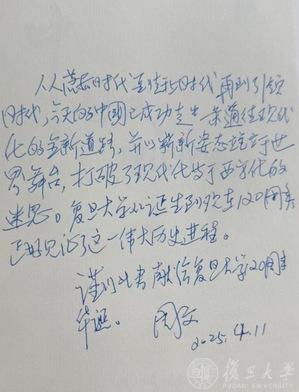 人人落后时代到赶上时代再到引领
时代,今天的中国已成功走出一条通往现代
化的全新道路,并以崭新姿态屹立于世
界舞台,打破了现代化等于西方化的
迷思。复旦大学从诞生到欢庆120周年
正好见证了这一伟大历史进程。
谨以此书献给复旦大学120周年
华诞。
2025.4.11
復旦大學
FUDAN UNIVERSITY